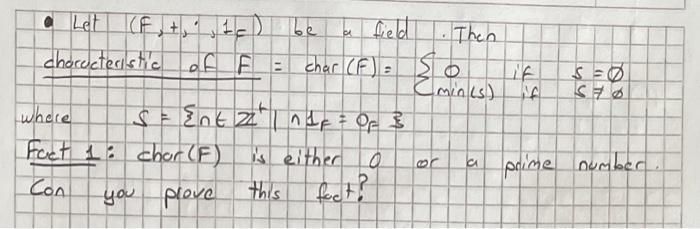 • Let (F, +, ·, 1_F) be a field. Then
characteristic of F = char(F) = { 0 if S = ∅
{ min(S) if S ≠ ∅
where S = {n ∈ ℤ⁺ | n1_F = 0_F}
Fact 1: char(F) is either 0 or a prime number.
Can you prove this fact?